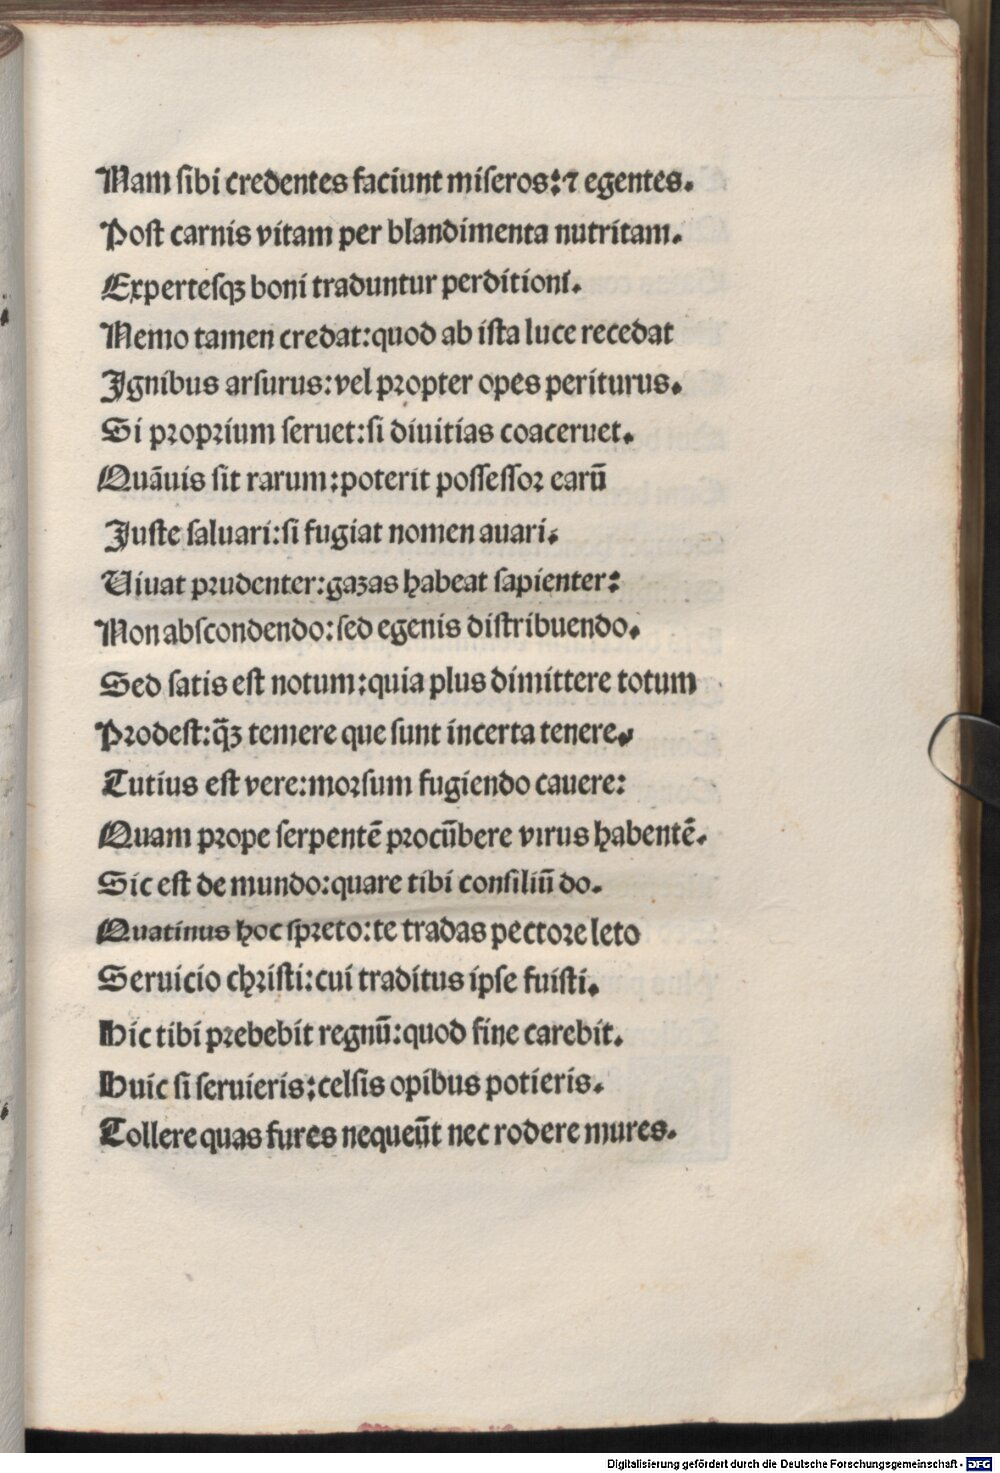 Nam sibi credentes faciunt miseros: ⁊ egentes.
Post carnis vitam per blandimenta nutritam.
Expertesqꝫ boni traduntur perditioni.
Nemo tamen credat: quod ab ista luce recedat
Ignibus arsurus: vel propter opes periturus.
Si proprium seruet: si diuitias coaceruet.
Quāuis sit rarum: poterit possessor earū
Juste saluari: si fugiat nomen auari.
Uiuat prudenter: gazas habeat sapienter:
Non abscondendo: sed egenis distribuendo.
Sed satis est notum: quia plus dimittere totum
Prodest: q̄ꝫ temere que sunt incerta tenere.
Tutius est vere: morsum fugiendo cauere:
Quam prope serpentē procūbere virus habentē.
Sic est de mundo: quare tibi consiliū do.
Quatinus hoc spreto: te tradas pectore leto
Seruicio christi: cui traditus ipse fuisti.
Hic tibi prebebit regnū: quod fine carebit.
Huic si seruieris: celsis opibus potieris.
Tollere quas fures nequeūt nec rodere mures.
Digitalisierung gefördert durch die Deutsche Forschungsgemeinschaft - DFG